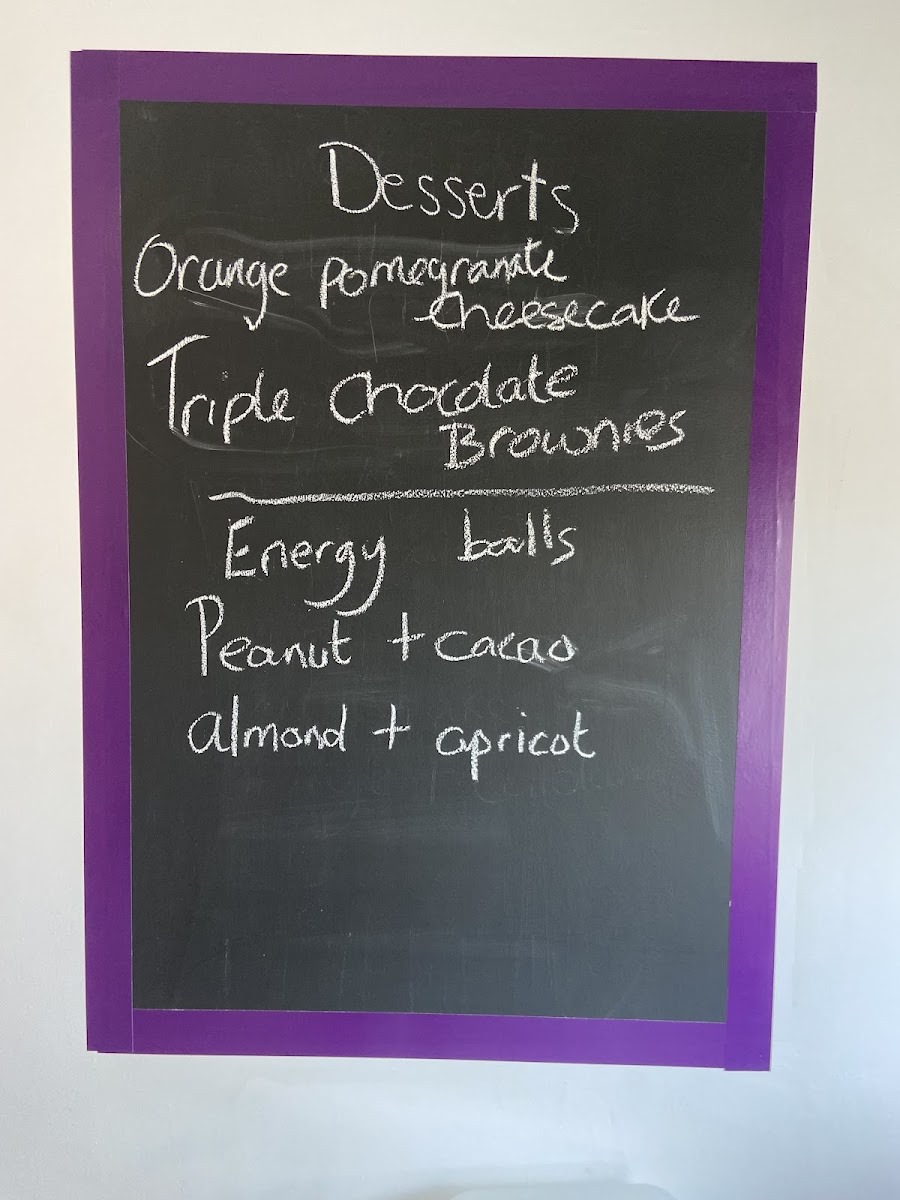 Desserts
Orange pomegranate
cheesecake
Triple Chocolate
Brownies
Energy balls
Peanut + cacao
almond + apricot